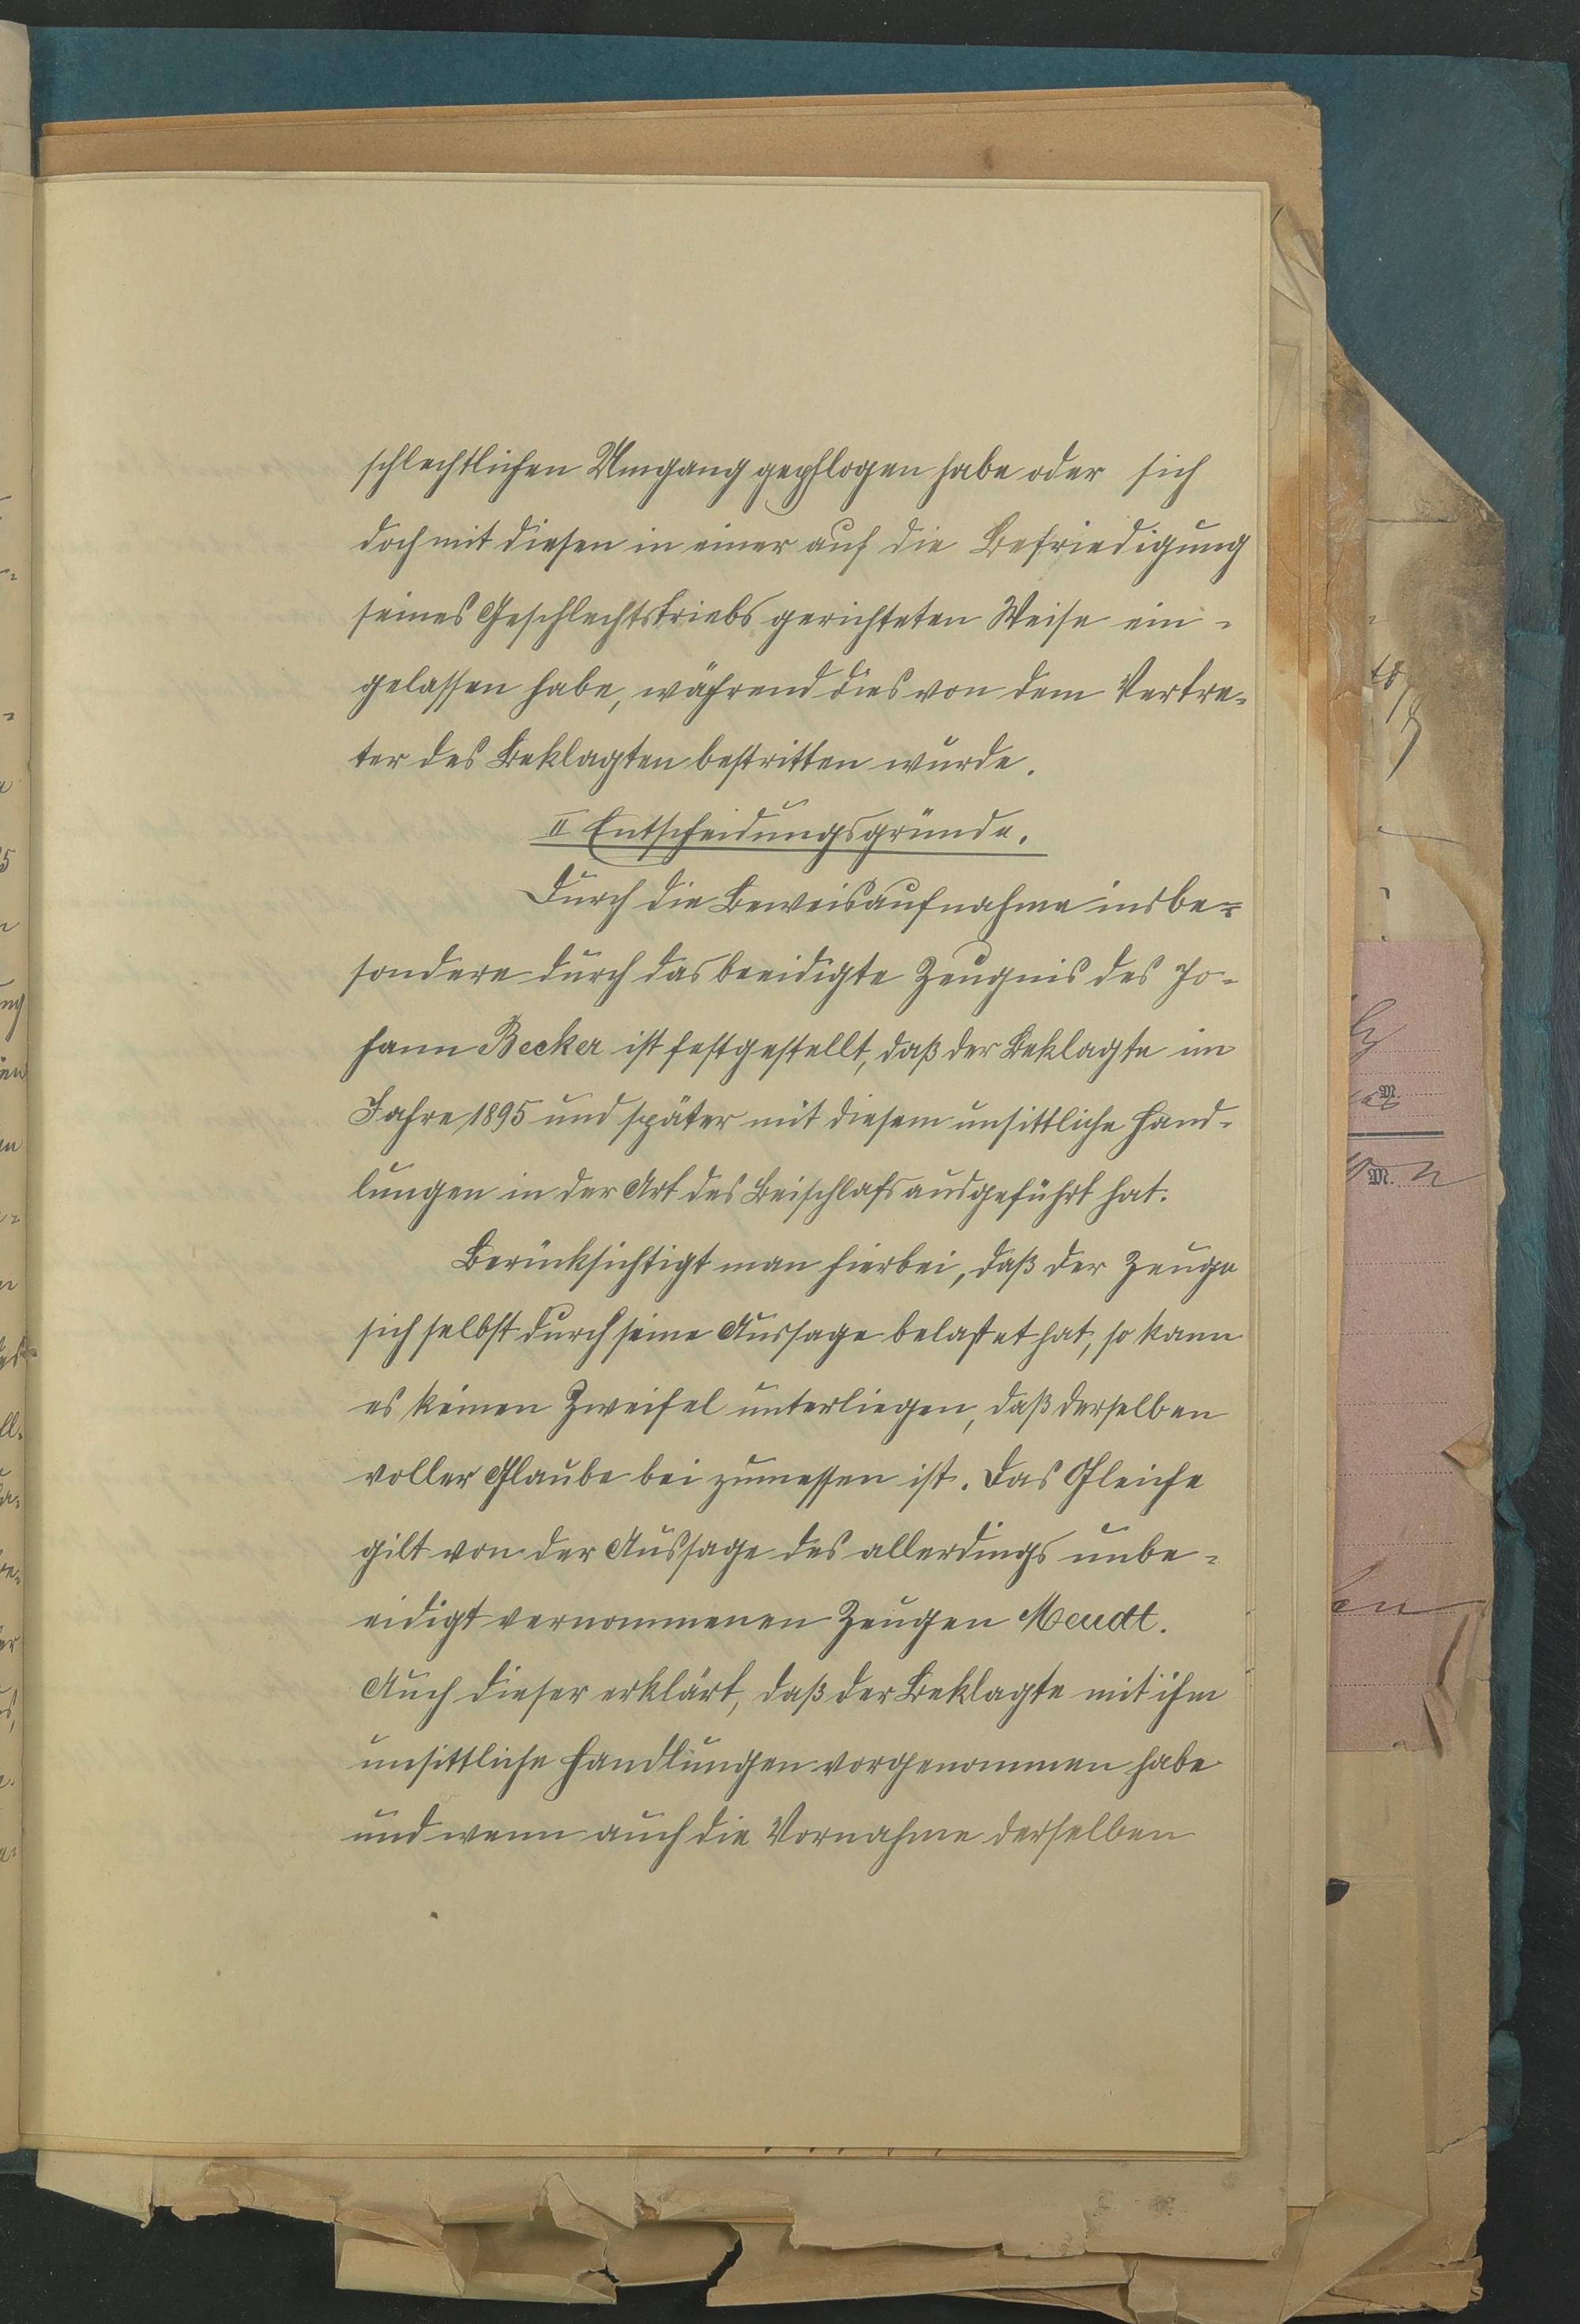 schlechtlichen Umgang gepflogen habe oder sich
doch mit diesen in einer auf die Befriedigung
seines Geschlechtstriebs gerichteten Weise ein-
gelassen habe, während dies von dem Vertre-
ter des Beklagten bestritten wurde.
II Entscheidungsgründe.
Durch die Beweisaufnahme insbe-
sondere durch das beeidigte Zeugnis des Jo-
hann Becker ist festgestellt, daß der Beklagte im
Jahre 1895 und später mit diesem unsittliche Hand-
lungen in der Art des Beischlafs ausgeführt hat.
Berücksichtigt man hierbei, daß der Zeuge
sich selbst durch seine Aussage belastet hat, so kann
es keinen Zweifel unterliegen, daß derselben
voller Glaube bei zumessen ist. Das Gleiche
gilt von der Aussage des allerdings unbe-
eidigt vernommenen Zeugen Meudt.
Auch dieser erklärt, daß der Beklagte mit ihm
unsittliche Handlungen vorgenommen habe
und wenn auch die Vornahme derselben